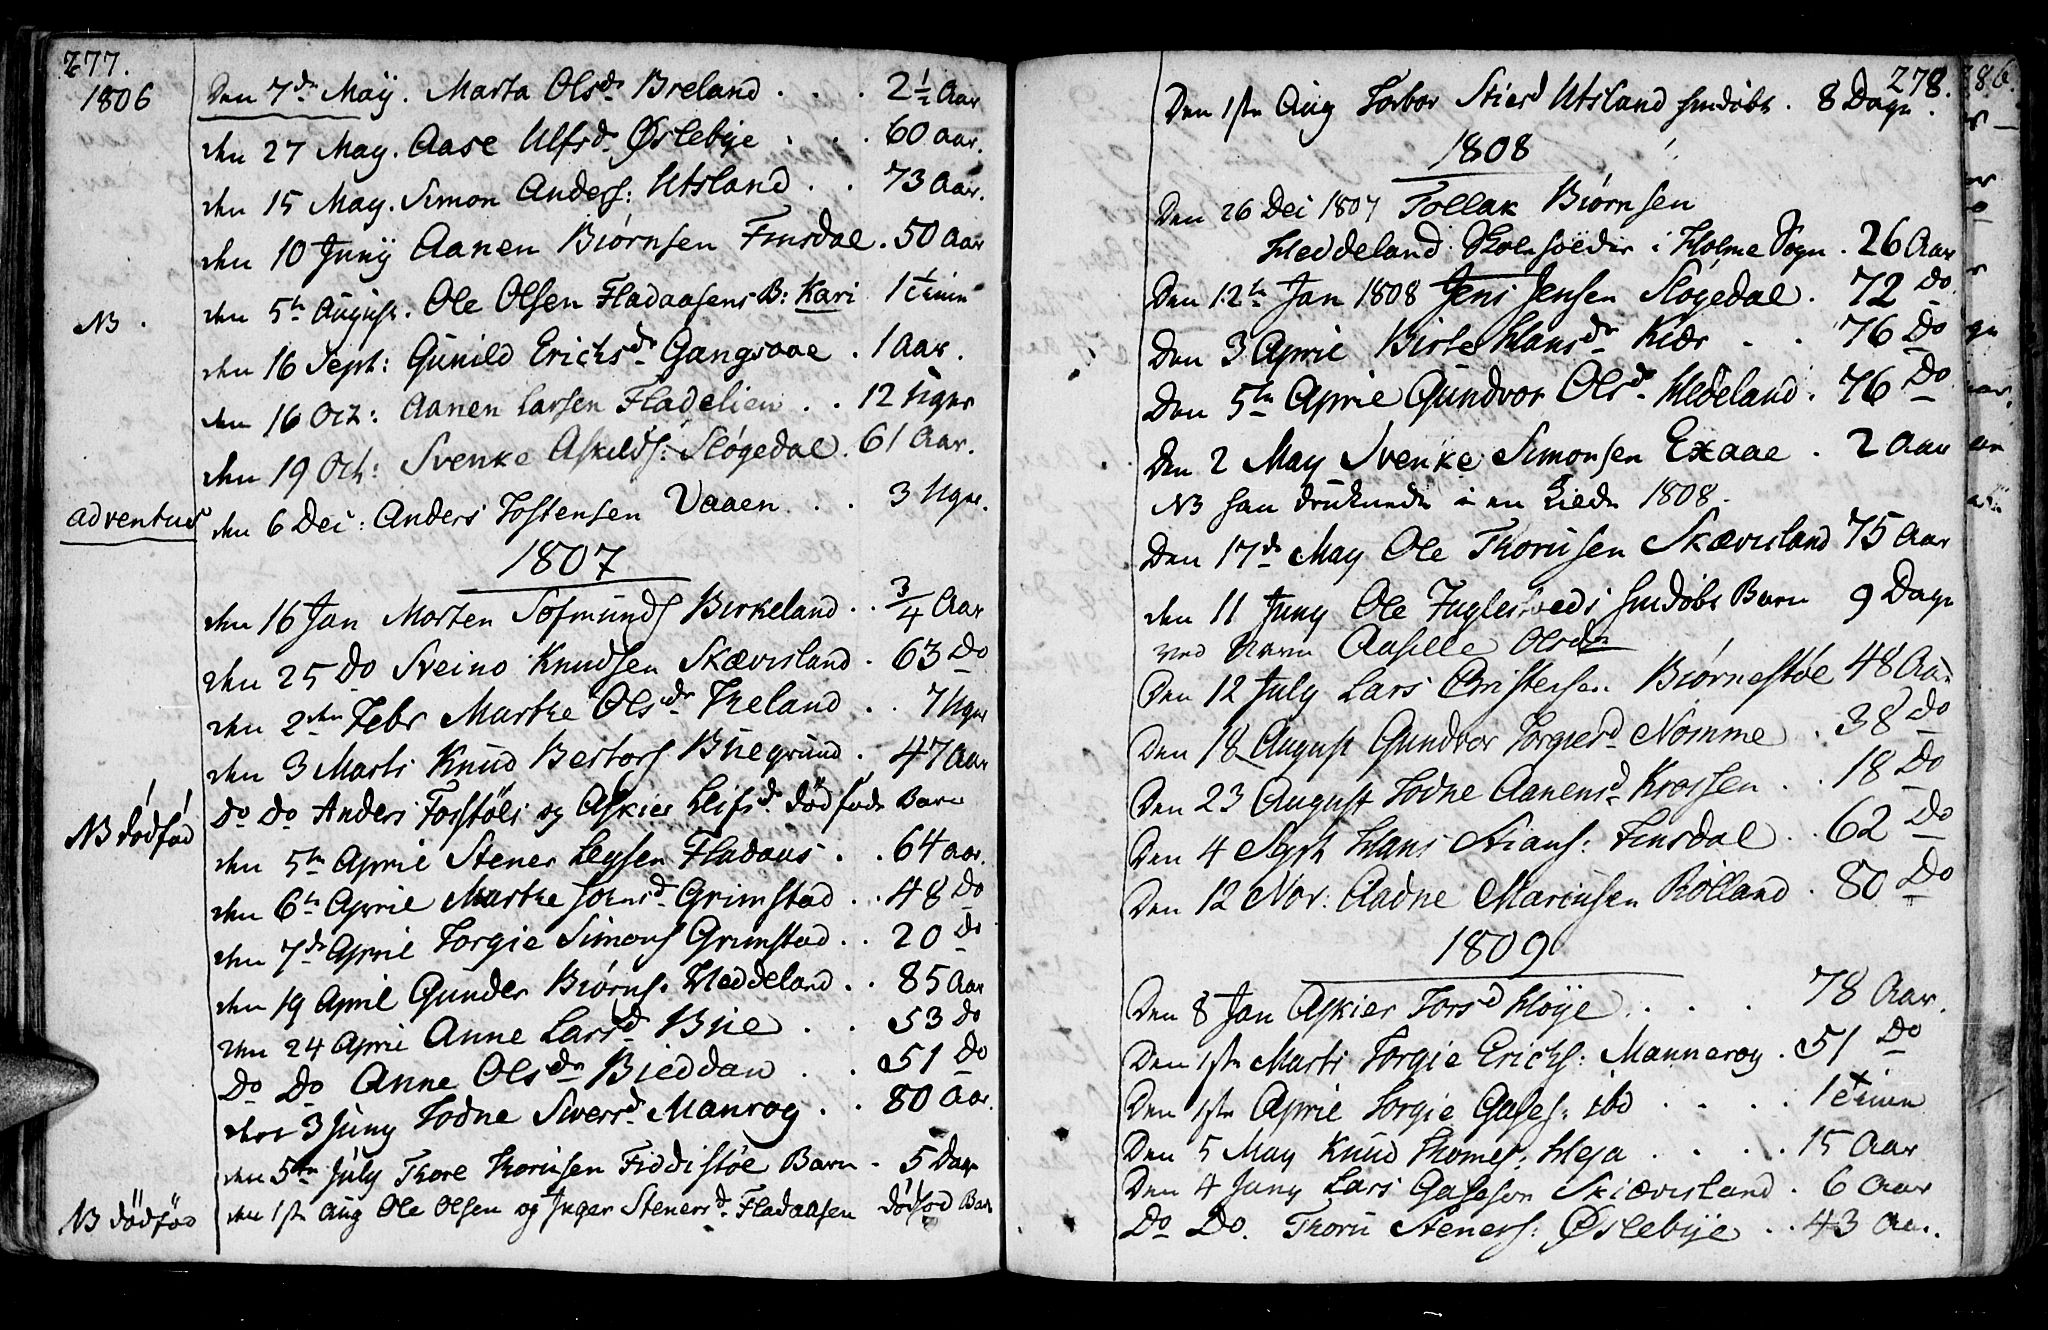 277.
1806
Den 7de Maÿ. Marta Olsdr Breland . . . 2½ Aar
den 27 May. Aase Ulfsd. Øslebÿe . . . 60 aar.
den 15 May. Simon Anders: Utsland . . 73 Aar.
den 10 Junÿ Aanen Biørnsen Finsdal . 50 Aar
NB. den 5te August. Ole Olsen Fladaasens B: Kari 1 time
den 16 Sept: Gunild Erichsdr Gangsaae . 1 Aar.
den 16 Oct: Aanen Larsen Fladelien . . 12 Uger
den 19 Oct: Svenke Askilds: Sløgedal . 61 Aar.
adventus den 6 Dec: Anders Tostensen Vaaen . . 3 Uger.
1807
den 16 Jan Morten Sofmunds Birkeland . . ¾ Aar
den 25 Do Sveino Knudsen Skævisland . 63 Do
den 2den Febr Marthe Olsdr Heland . . 7 Uger
den 3 Marti Knud Bertors Buegrund . 47 Aar
NB dödföd Do Do Anders Fosstöls og Askier Leifsd. död föde Barn
den 5te April Stener Leysen Fladaas . . 64 aar.
den 6te April Marthe Johnsd. Grimstad . . 48 Do
den 7de April Torgie Simons Grimstad . . 20 Do
den 19 April Gunder Biørns. Heddeland . . 85 Aar
den 24 April Anne Larsd. Bue . . 53 Do
Do Do Anne Olsdr Bieddan . . 51 Do
den 3 Juny Todne Sversd. Manrog . . 80 Aar.
den 5te July Thore Thorusen Fiddistøe Barn . 5 Dage
NB dödföd den 1ste Aug Ole Olsen og Inger Stenersd. Fladaasen dödföd Barn
278.
Den 1ste Aug Torbor Stiersd Utsland hmdøbt . 8 Dage.
1808
Den 26 Dec 1807 Tollak Biørnsen
Heddeland. Skolehoëder i Holme Sogn . 26 Aar
Den 12te Jan 1808 Jens Jensen Slogedal . 72 Do
Den 3 April Birte Hansdr Kiær . . 76 Do
Den 5te April Gundvor Olsd. Hedeland . 76 Do
Den 2 May Svenke Simonsen Exaae . 2 Aar
NB han druknede i en Kielde 1808.
Den 17de May Ole Thorusen Skævisland 75 Aar
den 11 Juny Ole Fuglestveds hmdøbt Barn 9 Dage
ved Navn Aasille Olsdr
Den 12 July Lars Christensen Biørnestøe 48 Aar
Den 18 August Gundvor Torgiersd Nomme . 38 Do
Den 23 August Todne Aanensd. Krossen . 18 Do
Den 4 Sept Hans Stians: Finsdal . . 62 Do
Den 12 Nov: Aadne Marcusen Rolland . 80 Do
1809
Den 8 Jan Askier Torsd Høye . . . . 78 Aar.
Den 1ste Marti Torgie Erichs: Mannerog . 51 Do
Den 1ste April Torgie Gases: ibd . . . . 1 time
Den 5 May Knud Thomes: Heja . . . . 15 Aar
Den 4 Juny Lars Gaseson Skiævisland . 6 Aar
Do Do. Thoru Steners: Øslebÿe . . 43 Aar.
286.